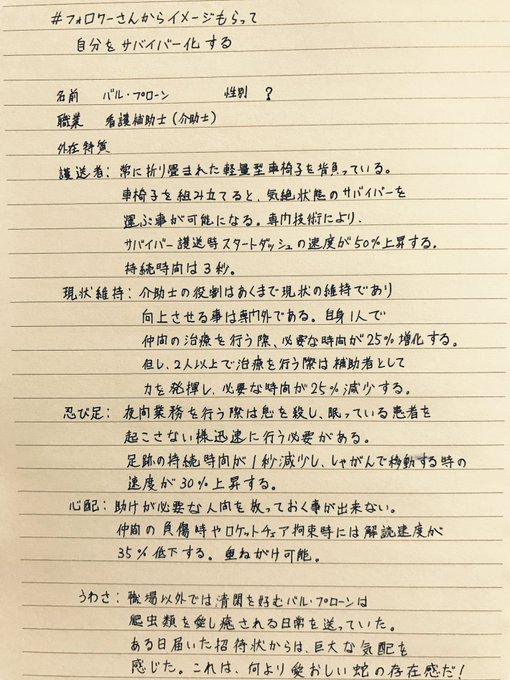 #フォロワーさんからイメージもらって
自分をサバイバー化する
名前 バル・プローン 性別 ?
職業 看護補助士(介助士)
外在特質
護送者:常に折り畳まれた軽量型車椅子を背負っている。
車椅子を組み立てると、気絶状態のサバイバーを
運ぶ事が可能になる。専門技術により、
サバイバー護送時スタートダッシュの速度が50%上昇する。
持続時間は3秒。
現状維持:介助士の役割はあくまで現状の維持であり
向上させる事は専門外である。自身1人で
仲間の治療を行う際、必要な時間が25%増化する。
但し、2人以上で治療を行う際は補助者として
力を発揮し、必要な時間が25%減少する。
忍び足:夜間業務を行う際は息を殺し、眠っている患者を
起こさない様迅速に行う必要がある。
足跡の持続時間が1秒減少し、しゃがんで移動する時の
速度が30%上昇する。
心配:助けが必要な人間を放っておく事が出来ない。
仲間の負傷時やロケットチェア拘束時には解読速度が
35%低下する。重ねがけ可能。
うわさ:職場以外では清閑を好むバル・プローンは
爬虫類を愛し癒される日常を送っていた。
ある日届いた招待状からは、巨大な気配を
感じた。これは、何より愛おしい蛇の存在感だ!